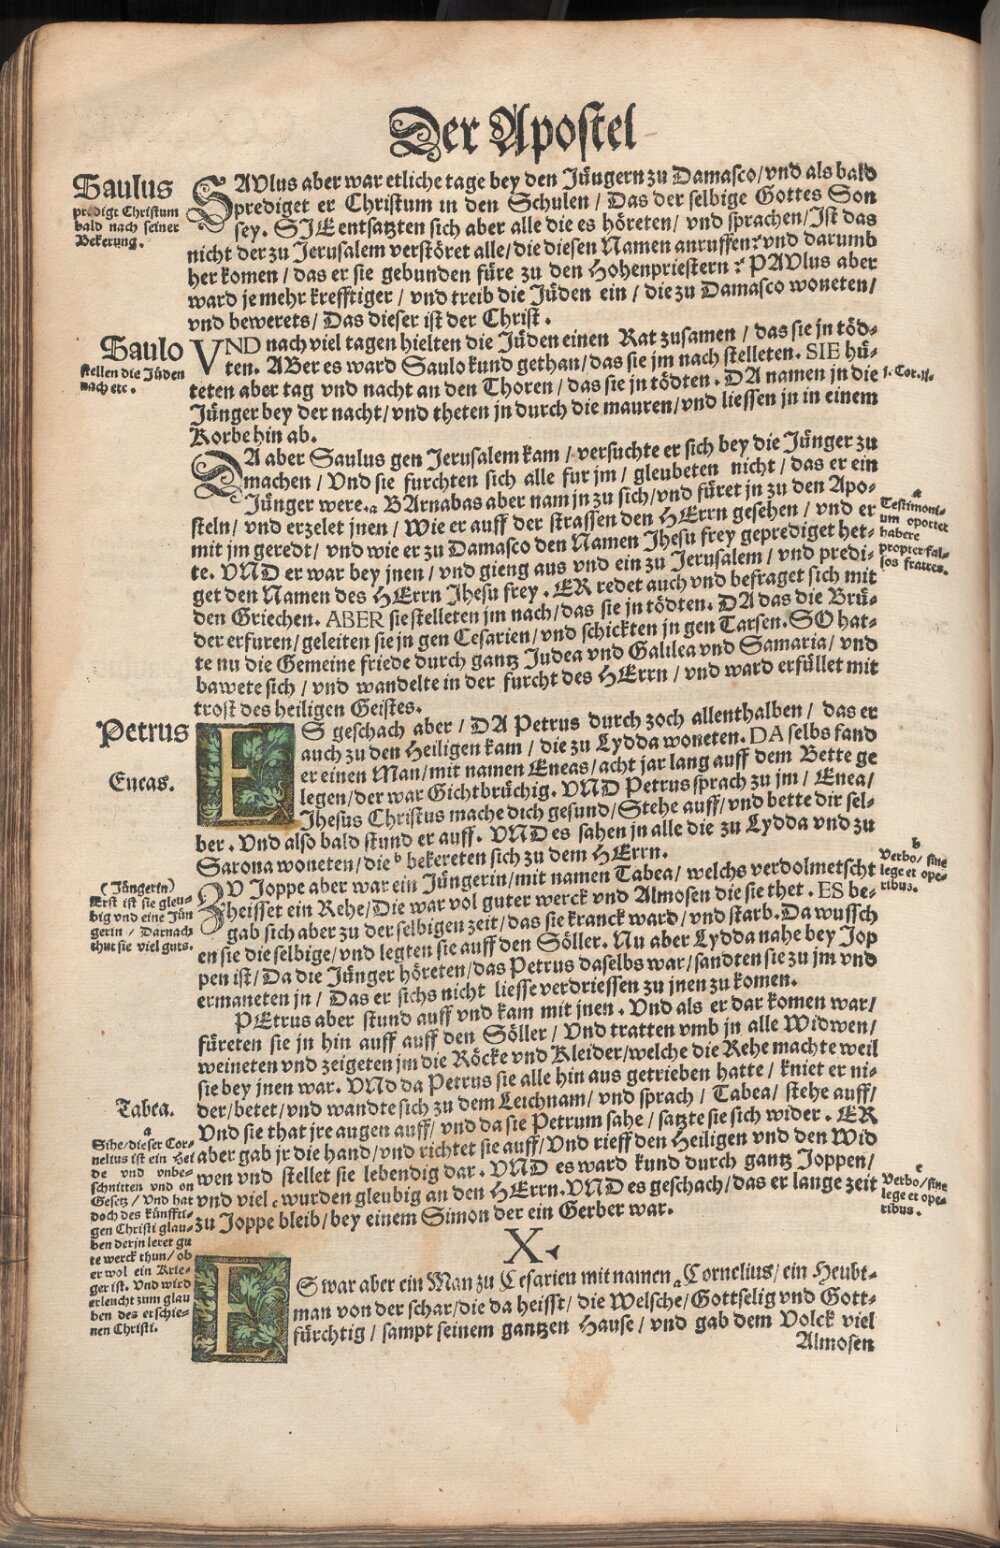 Der Apostel
Saulus
predigt Christum
bald nach seiner
Bekerung.
SAVlus aber war etliche tage bey den Jüngern zu Damasco/vnd als bald
prediget er Christum in den Schulen/ Das der selbige Gottes Son
sey. SJE entsatzten sich aber alle die es höreten/ vnd sprachen/Jst das
nicht der zu Jerusalem verstöret alle/die diesen Namen anruffen? vnd darumb
her komen/das er sie gebunden füre zu den Hohenpriestern? PAVlus aber
ward je mehr krefftiger/ vnd treib die Jüden ein/ die zu Damasco woneten/
vnd bewerets/Das dieser ist der Christ.
Saulo
stellen die Jüden
nach etc.
VND nach viel tagen hielten die Jüden einen Rat zusamen/ das sie jn töd-
ten. ABer es ward Saulo kund gethan/das sie jm nach stelleten. SIE hü-
teten aber tag vnd nacht an den Thoren/das sie jn tödten. DA namen jn die
Jünger bey der nacht/vnd theten jn durch die mauren/vnd liessen jn in einem
Korbe hin ab.
DA aber Saulus gen Jerusalem kam/ versuchte er sich bey die Jünger zu
machen/ Vnd sie furchten sich alle fur jm/ gleubeten nicht/ das er ein
Jünger were. a BArnabas aber nam jn zu sich/vnd füret jn zu den Apo-
steln/ vnd erzelet jnen/ Wie er auff der strassen den HErrn gesehen/ vnd er
mit jm geredt/ vnd wie er zu Damasco den Namen Jhesu frey geprediget het-
te. VND er war bey jnen/ vnd gieng aus vnd ein zu Jerusalem/ vnd predi-
get den Namen des HErrn Jhesu frey. ER redet auch vnd befraget sich mit
den Griechen. ABER sie stelleten jm nach/das sie jn tödten. DA das die Brü-
der erfuren/geleiten sie jn gen Cesarien/vnd schickten jn gen Tarsen. SO hat-
te nu die Gemeine friede durch gantz Judea vnd Galilea vnd Samaria/ vnd
bawete sich/ vnd wandelte in der furcht des HErrn/ vnd ward erfüllet mit
trost des heiligen Geistes.
a
Testimoni-
um oportet
habere
propter fal-
sos fratres.
Petrus
Eneas.
ES geschach aber/ DA Petrus durch zoch allenthalben/ das er
auch zu den Heiligen kam/ die zu Lydda woneten. DA selbs fand
er einen Man/mit namen Eneas/acht jar lang auff dem Bette ge
legen/der war Gichtbrüchig. VND Petrus sprach zu jm/ Enea/
Jhesus Christus mache dich gesund/Stehe auff/vnd bette dir sel-
ber. Vnd also bald stund er auff. VND es sahen jn alle die zu Lydda vnd zu
Sarona woneten/die b bekereten sich zu dem HErrn.
b
Verbo/sine
lege et ope-
ribus.
(Jüngerin)
Erst ist sie gleu-
big vnd eine Jün
gerin/ Darnach
thut sie viel guts.
ZV Joppe aber war ein Jüngerin/mit namen Tabea/ welchs verdolmetscht
heisset ein Rehe/Die war vol guter werck vnd Almosen die sie thet. ES be-
gab sich aber zu der selbigen zeit/das sie kranck ward/vnd starb. Da wussch
en sie die selbige/vnd legten sie auff den Söller. Nu aber Lydda nahe bey Jop
pen ist/Da die Jünger höreten/das Petrus daselbs war/sandten sie zu jm vnd
ermaneten jn/ Das er sichs nicht liesse verdriessen zu jnen zu komen.
PEtrus aber stund auff vnd kam mit jnen. Vnd als er dar komen war/
füreten sie jn hin auff auff den Söller/ Vnd tratten vmb jn alle Widwen/
weineten vnd zeigeten jm die Röcke vnd Kleider/welche die Rehe machte weil
sie bey jnen war. VNd da Petrus sie alle hin aus getrieben hatte/ kniet er ni-
der/betet/vnd wandte sich zu dem Leichnam/ vnd sprach/ Tabea/ stehe auff/
Vnd sie that jre augen auff/ vnd da sie Petrum sahe/ satzte sie sich wider. ER
aber gab jr die hand/vnd richtet sie auff/Vnd rieff den Heiligen vnd den Wid
wen vnd stellet sie lebendig dar. VND es ward kund durch gantz Joppen/
vnd viel c wurden gleubig an den HErrn. VND es geschach/das er lange zeit
zu Joppe bleib/bey einem Simon der ein Gerber war.
Tabea.
c
Verbo/sine
lege et ope-
ribus.
a
Sihe/dieser Cor-
nelius ist ein Hei
de vnd vnbe-
schnitten vnd on
Gesetz/ Vnd hat
doch des künffti-
gen Christi glau-
ben der jn leret gu
te werck thun/ ob
er wol ein Krie-
ger ist. Vnd wird
erleucht zum glau
ben des erschie-
nen Christi.
X.
ES war aber ein Man zu Cesarien mit namen a Cornelius/ ein Heubt-
man von der schar/die da heisst/ die Welsche/Gottselig vnd Gott-
fürchtig/ sampt seinem gantzen Hause/ vnd gab dem Volck viel
Almosen